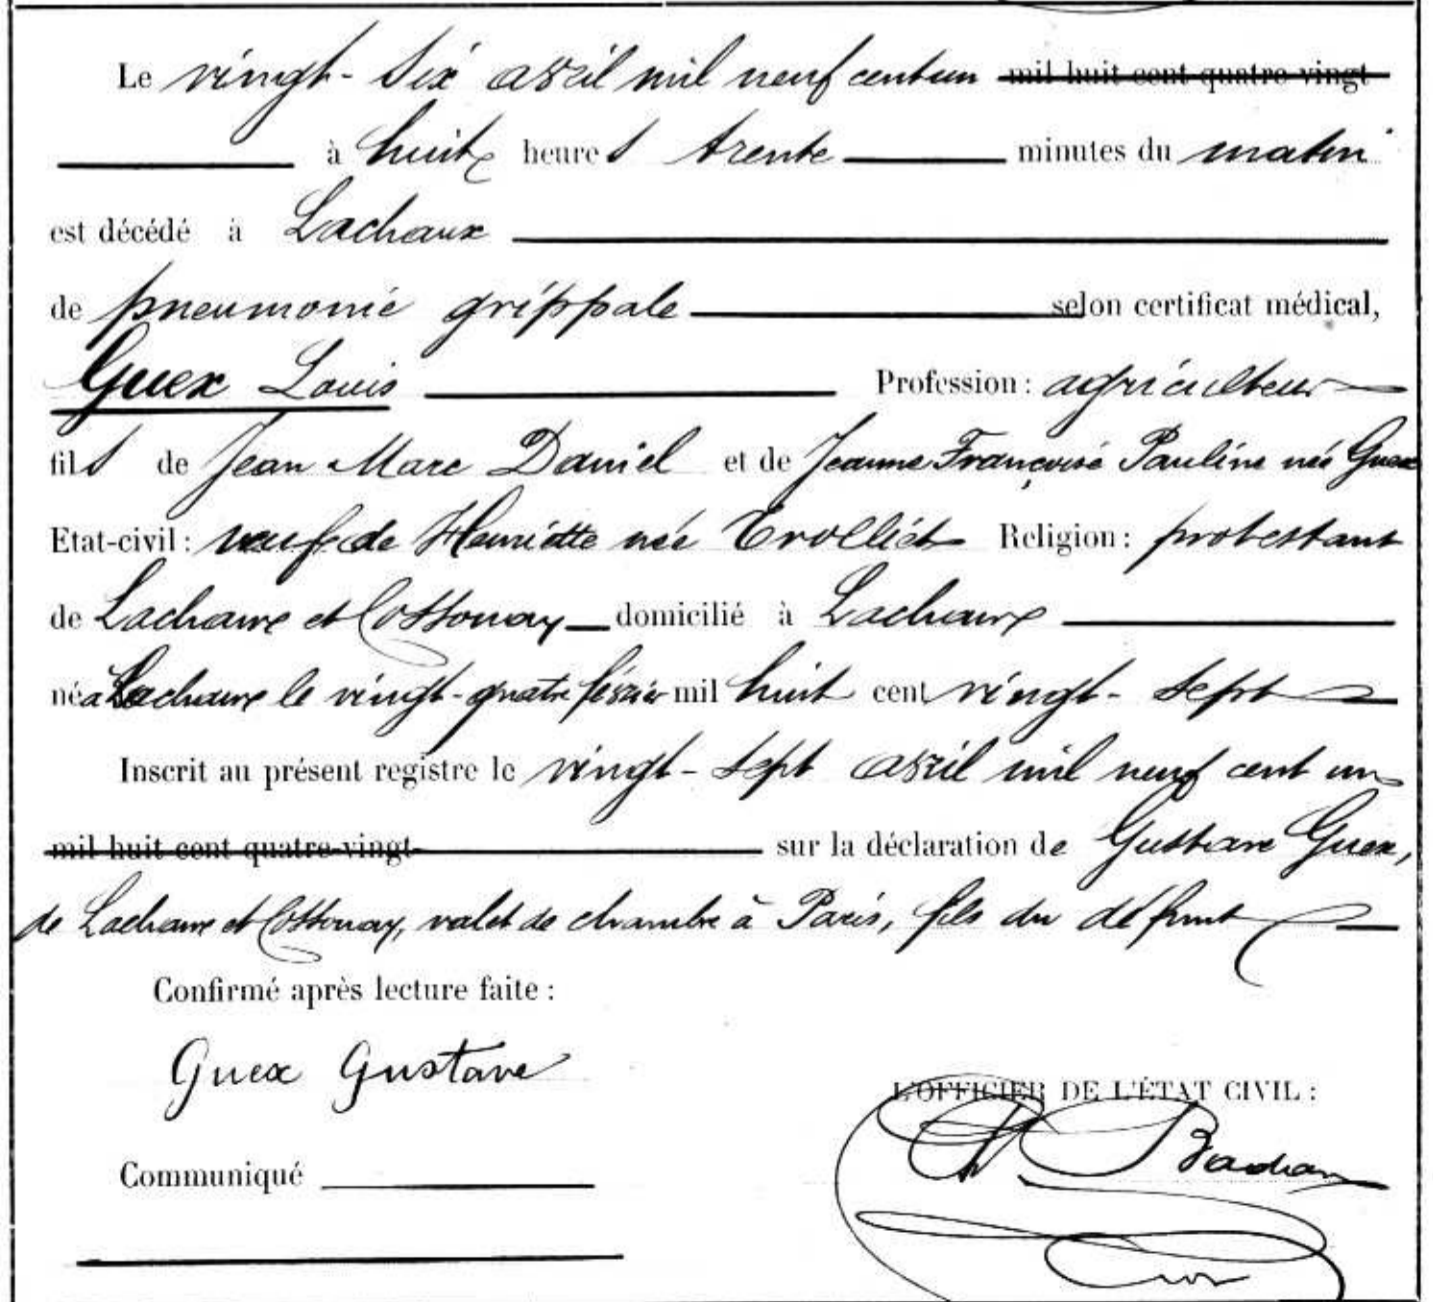 Le vingt-six avril mil neuf cent un mil huit cent quatre-vingt
à huit heures trente minutes du matin
est décédé à Lachaux
de pneumonie grippale selon certificat médical,
Guex Louis Profession : agriculteur
fils de Jean Marc Daniel et de Jeanne Françoise Pauline née Guex
Etat-civil : veuf de Henriette née Trolliet Religion : protestant
de Lachaux et Cossonay domicilié à Lachaux
né à Lachaux le vingt-quatre février mil huit cent vingt-sept
Inscrit au présent registre le vingt-sept avril mil neuf cent un
mil huit cent quatre-vingt- sur la déclaration de Gustave Guex,
de Lachaux et Cossonay, valet de chambre à Paris, fils du défunt
Confirmé après lecture faite :
Guex Gustave
L'OFFICIER DE L'ÉTAT CIVIL :
Communiqué